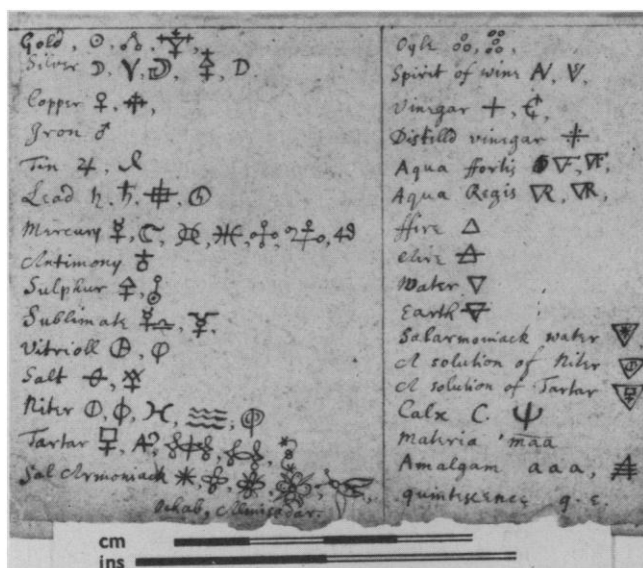 Gold, ☉
Silver ☽, D.
Copper ♀,
Iron ♂
Tin ♃,
Lead ♄, ♄,
Mercury ☿,
Antimony ♁
Sulphur
Sublimate
Vitrioll
Salt
Niter
Tartar
Sal Armoniack ✱
Ockab,
Oyle
Spirit of wine
Vinegar +,
Distilld vinegar
Aqua ffortis
Aqua Regis
ffire △
Aire 🜁
Water ▽
Earth 🜃
Salarmoniack water
A solution of Niter
A solution of Tartar
Calx C. Ψ
Materia maa
Amalgam a a a,
quintescence q. e.
cm
ins